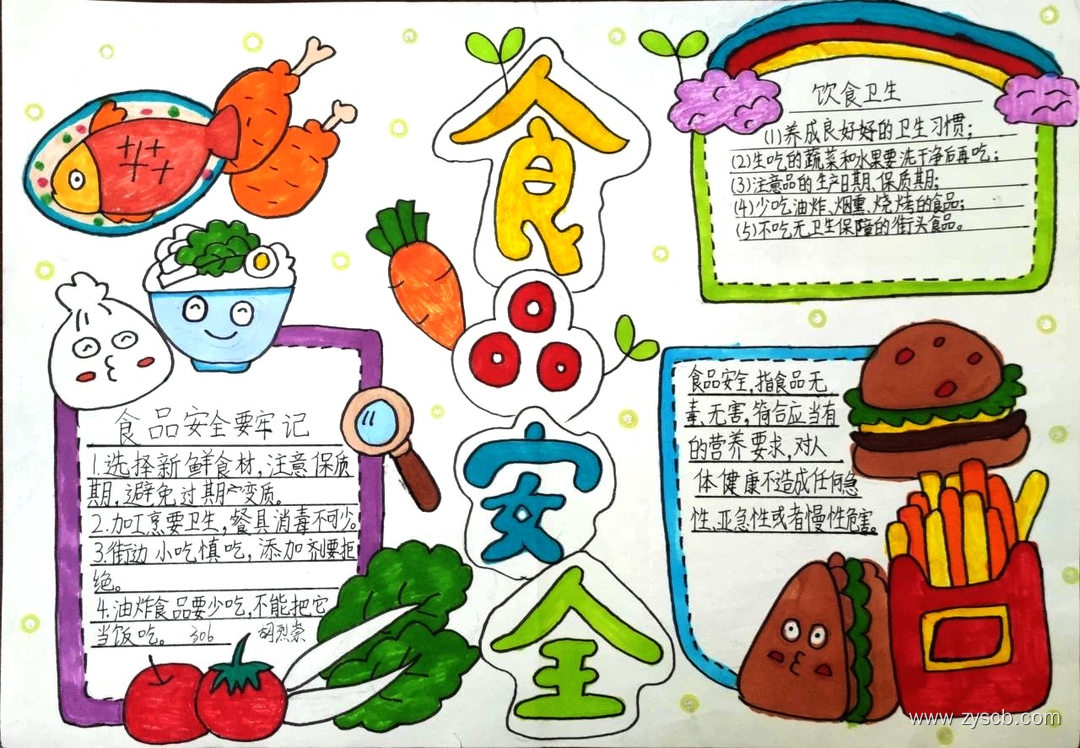 食品安全
饮食卫生
(1)养成良好好的卫生习惯;
(2)生吃的蔬菜和水果要洗干净后再吃;
(3)注意品的生产日期、保质期;
(4)少吃油炸、烟熏、烧烤的食品;
(5)不吃无卫生保障的街头食品。
食品安全要牢记
1.选择新鲜食材,注意保质
期,避免过期变质。
2.加工烹要卫生,餐具消毒不可少。
3.街边小吃慎吃,添加剂要拒
绝。
4.油炸食品要少吃,不能把它
当饭吃。 306
食品安全,指食品无
毒、无害,符合应当有
的营养要求,对人
体健康不造成任何急
性、亚急性或者慢性危害。
www.zyscb.com